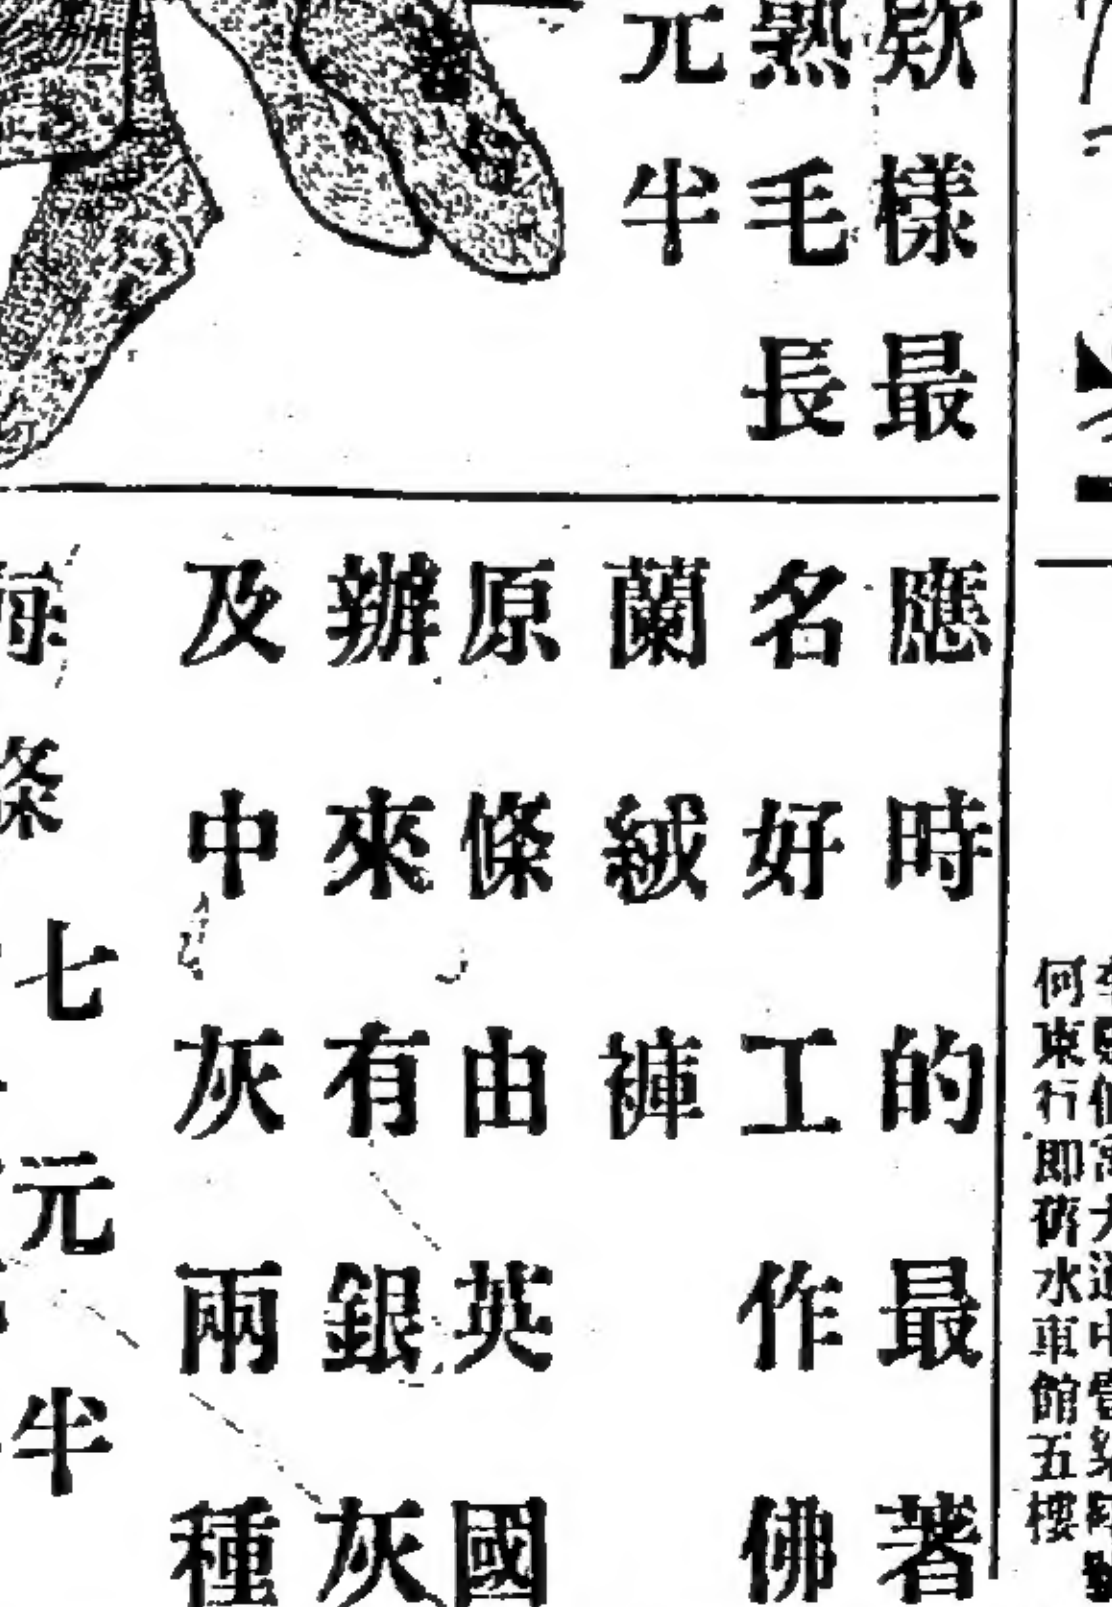 欵樣最
熟毛長
元半
應時的最著
名好工作佛
蘭絨褲
原條由英國
辦來有銀灰
及中灰兩種
七元半
何東行即舊水車館五樓